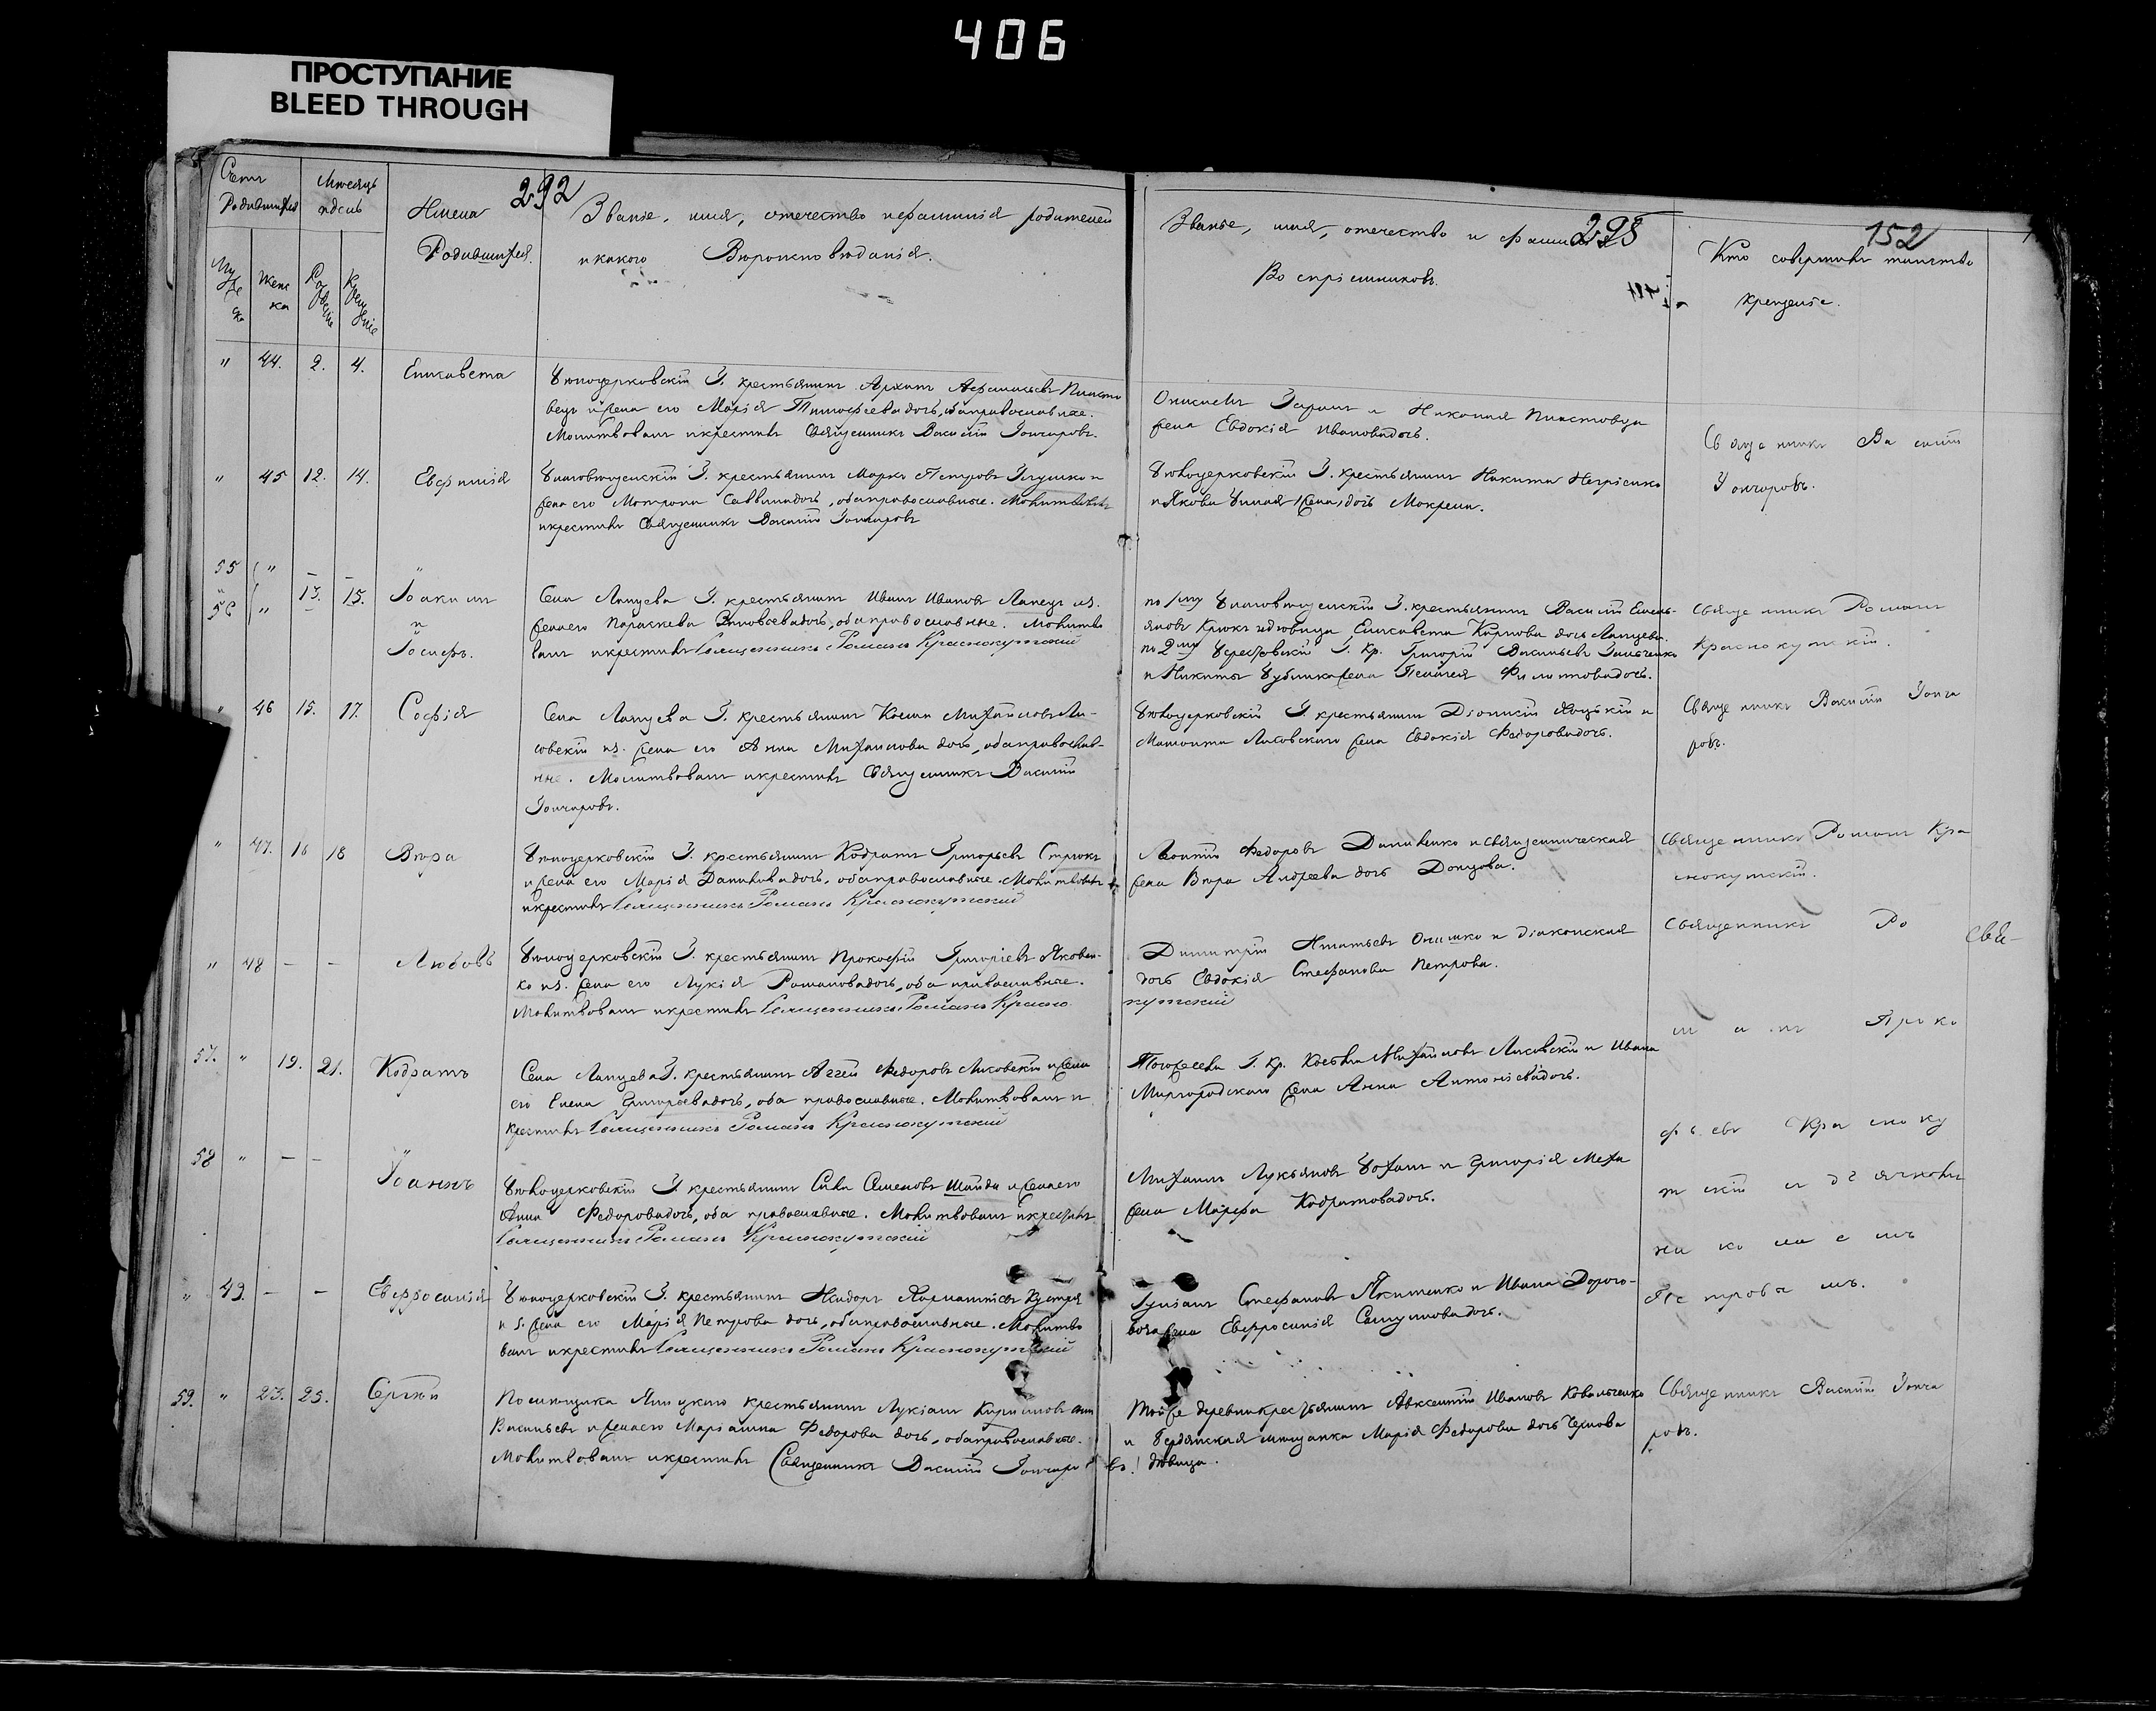 406
ПРОСТУПАНИЕ
BLEED THROUGH
292
298
152
Счетъ Родившихся
Мѣсяцъ и день
Имена Родившихся.
Званіе, имя, отечество и фамилія родителей
и какого Вѣроисповѣданія.
Званіе, имя, отечество и
Воспріемниковъ.
Кто совершилъ таинство
крещеніе.
" 44. 2. 4. Елисавета
Бѣлоцерковскій Г. крестьянинъ Архипъ
вецъ и жена его Марія Тимофеева дочь, оба православные.
Молитвовалъ и крестилъ Священникъ Василій Гончаровъ.
жена Евдокія Иванова дочь.
Священникъ Василій
Гончаровъ.
" 45 12. 14. Евфимія
Г. крестьянинъ Марко Петровъ Глушко и
жена его Матрона Саввина дочь, оба православные. Молитвовалъ
и крестилъ Священникъ Василій Гончаровъ
Бѣлоцерковскій Г. крестьянинъ Никита
55 " — —
56 " 13. 15. Іоакимъ
и
Іосифъ.
Села Лапцева Г. крестьянинъ Иванъ Ивановъ Лапецъ из.
жена его Параскева дочь, оба православные. Молитво
валъ и крестилъ Священникъ Романъ Краснокутскій
по 1му Г. крестьянинъ Василій Емель-
яновъ Крюкъ и дѣвица Елисавета Карпова дочь Лапцева.
по 2му Г. Кр. Григорій Васильевъ
Священникъ Романъ
Краснокутскій.
" 46 15. 17. Софія
Села Лапцева Г. крестьянинъ Косма Михайловъ Ли-
совскій из. жена его Анна Михайлова дочь, оба православ-
ные. Молитвовалъ и крестилъ Священникъ Василій
Гончаровъ.
Бѣлоцерковскій Г. крестьянинъ Діонисій Яцькій и
Лисовскаго жена Евдокія Федорова дочь.
Священникъ Василій Гонча
ровъ.
" 47. 16 18 Вѣра
Бѣлоцерковскій Г. крестьянинъ Кодратъ Григорьевъ
и жена его Марія Данилова дочь, оба православные. Молитвовалъ
и крестилъ Священникъ Романъ Краснокутскій
Леонтій Федоровъ Данивенко и священническая
жена Вѣра Андреева дочь Донцова.
Священникъ Романъ Кра
снокутскій.
" 48 — — Любовь
Бѣлоцерковскій Г. крестьянинъ Прокофій Григоріевъ Яковен-
ко из. жена его Лукія Романова дочь, оба православные.
Молитвовалъ и крестилъ Священникъ Романъ Красно
кутскій
Димитрій Игнатьевъ Онишко и діаконская
дочь Евдокія Стефанова Петрова.
Священникъ Ро
57. " 19. 21. Кодратъ
Села Лапцева Г. крестьянинъ Аггей Федоровъ Лисовскій и жена
его Елена Григорьева дочь, оба православные. Молитвовалъ и
крестилъ Священникъ Романъ Краснокутскій
Того же села Г. Кр. Косьма Михайловъ Лисовскій и Ивана
Миргородскаго жена Анна Антоніева дочь.
манъ Проко
58 " — — Іоаннъ
Бѣлоцерковскій Г. крестьянинъ Сила Семеновъ Шайда и жена его
Анна Федорова дочь, оба православные. Молитвовалъ и крестилъ
Священникъ Романъ Краснокутскій
Михаилъ Лукьяновъ и Григорія
жена Марфа Кодратова дочь.
фьевъ Красноку
тскій и дьячкомъ
Николаемъ
Петровымъ.
" 49. — — Евфросинія
Бѣлоцерковскій Г. крестьянинъ Исидоръ
и з. жена его Марія Петрова дочь, оба православные. Молитво
валъ и крестилъ Священникъ Романъ Краснокутскій
Стефановъ Якименко и Ивана Дорого-
жена Евфросинія дочь.
59. " 23. 25. Сергѣй
Помѣщика крестьянинъ Лукіанъ Кириловъ
Васильевъ и жена его Маріанна Федорова дочь, оба православные.
Молитвовалъ и крестилъ Священникъ Василій Гончаровъ.
Той же деревни крестьянинъ Авксентій Ивановъ Ковальченко
и Бердянская мѣщанка Марія Федорова дочь Чернова
дѣвица.
Священникъ Василій Гонча
ровъ.